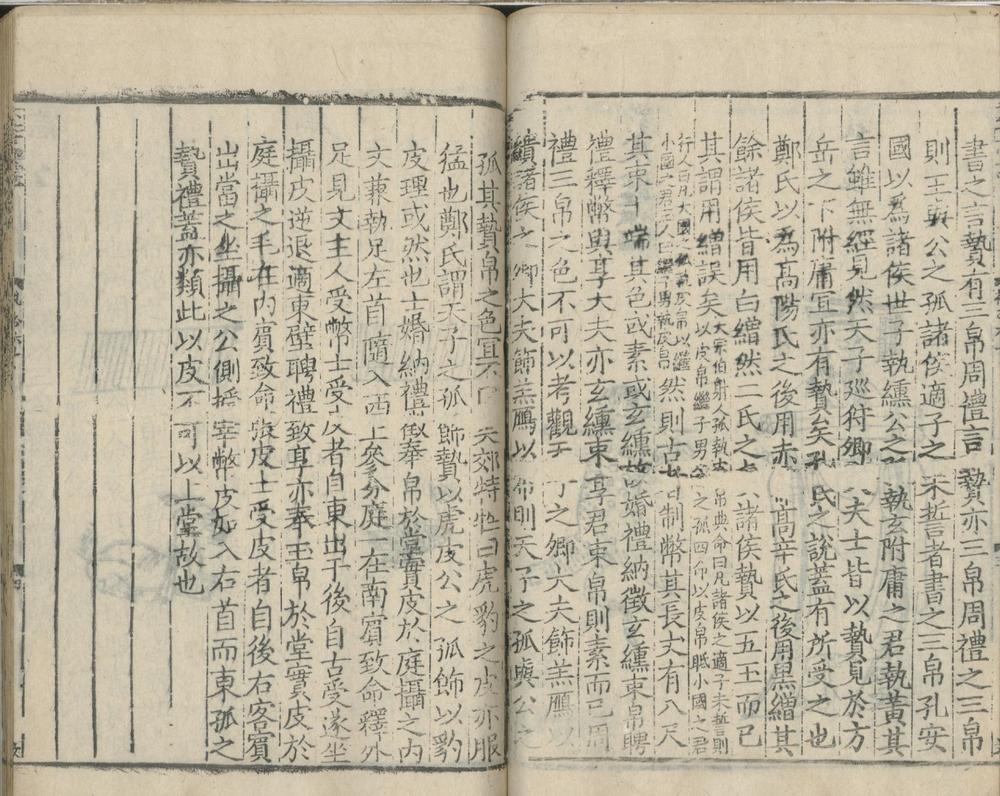 書之言贄有三帛周禮言贄亦三帛周禮之三帛
則王之公之孤諸侯適子之未誓者書之三帛孔安
國以為諸侯世子執纁公之孤執玄附庸之君執黃其
言雖無經見然天子巡狩卿大夫士皆以贄見於方
岳之下附庸宜亦有贄矣孔氏之說蓋有所受之也
鄭氏以為高陽氏之後用赤繒高辛氏之後用黑繒其
餘諸侯皆用白繒然二氏之諸侯贄以五玉而已
其謂用繒誤矣
大宗伯孤執皮帛典命曰凡諸侯之適子未誓則
以皮帛繼子男公之孤四命以皮帛眡小國之君
行人曰凡大國之孤執皮帛以繼
小國之君
然則古者制幣其長丈有八尺
其束十端其色或素或玄纁故婚禮納徵玄纁束帛聘
禮釋幣與享大夫亦玄纁束享君束帛則素而已周
禮三帛之色不可以考觀天子之卿大夫飾羔鴈以
繢諸侯之卿大夫飾羔鴈以布則天子之孤與公之
孤其贄帛之色宜不同矣郊特牲曰虎豹之皮示服
猛也鄭氏謂天子之孤飾贄以虎皮公之孤飾以豹
皮理或然也士婚納禮儷奉帛於堂實皮於庭攝之內
文兼執足左首隨入西上參分庭一在南賓致命釋外
足見文主人受幣士受皮者自東出于後自右受遂坐
攝皮逆退適東壁聘禮致享亦奉玉帛於堂實皮於
庭攝之毛在內賓致命張皮士受皮者自後右客賓
出當之坐攝之公側授宰幣皮如入右首而東孤之
贄禮蓋亦類此以皮不可以上堂故也